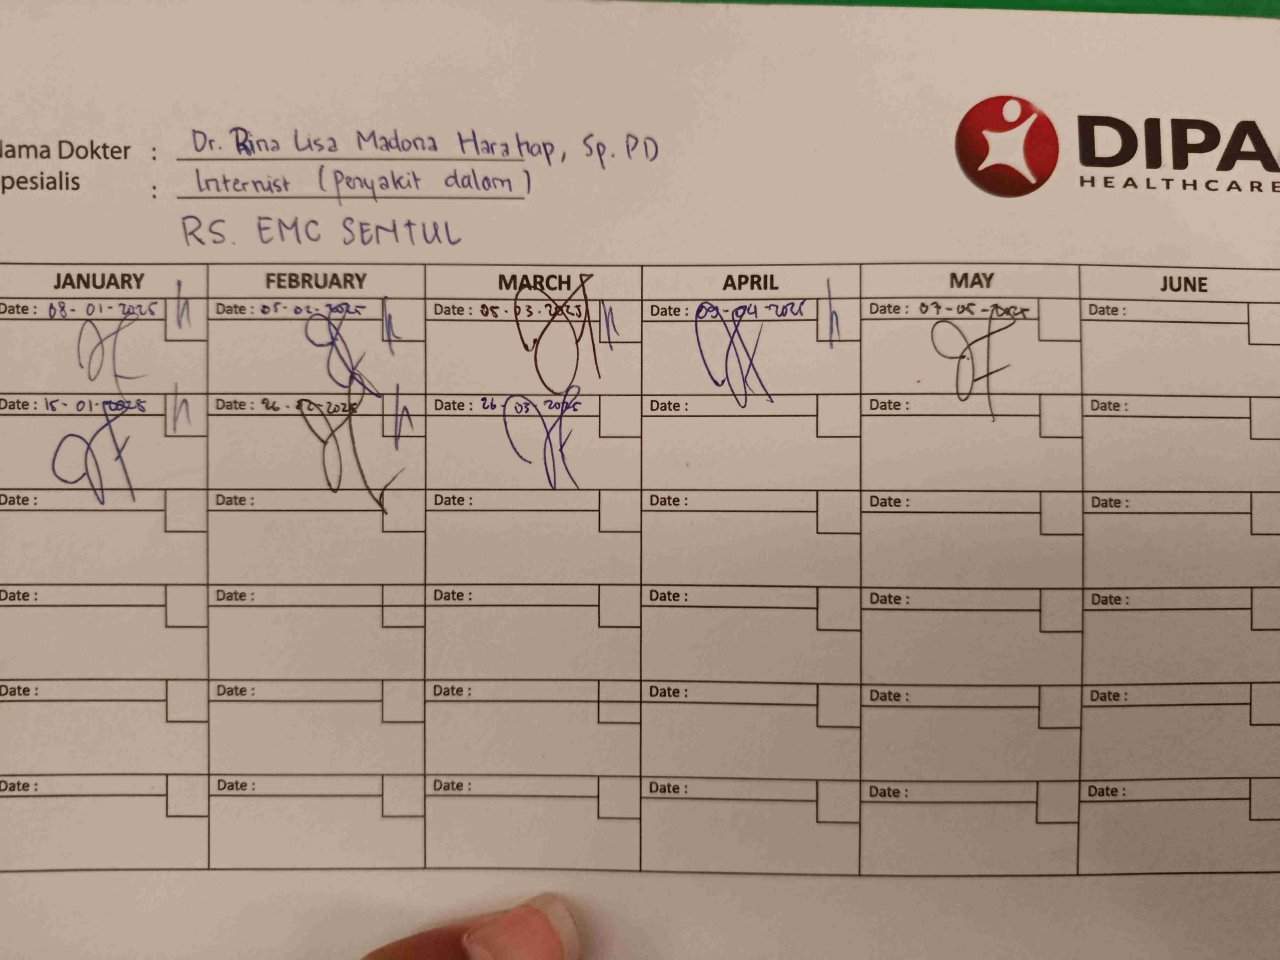 Nama Dokter : Dr. Rina Lisa Madona Harahap, Sp. PD
pesialis : Internist (Penyakit dalam)
RS. EMC SENTUL
DIPA
HEALTHCARE
JANUARY FEBRUARY MARCH APRIL MAY JUNE
Date : 08-01-2025 Date : 05-02-2025 Date : 05-03-2025 Date : 09-04-2025 Date : 07-05-2025 Date :
Date : 15-01-2025 Date : 26-02-2025 Date : 26-03-2025 Date : Date : Date :
Date : Date : Date : Date : Date : Date :
Date : Date : Date : Date : Date : Date :
Date : Date : Date : Date : Date : Date :
Date : Date : Date : Date : Date : Date :